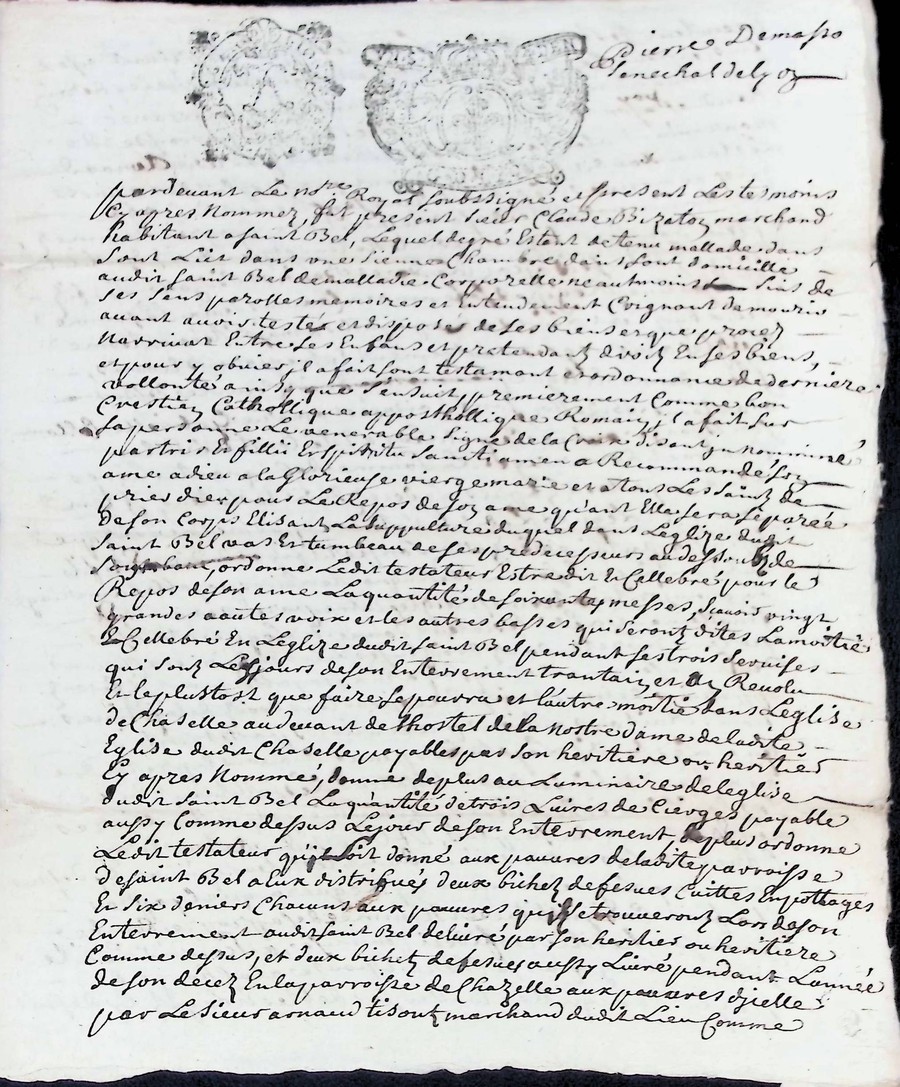 Pierre Demasso
Senechal de lyoz
pardevant Le no.re Royal soubssigné et present Les tesmoins
Cy apres Nommez, fut present sieur Claude Bizetoz marchand
habitant a saint Bel, Lequel de gré Estant detenu mallade dans
sont Lict dans une sienne Chambre dans sont domicille
audit saint Bel de malladie Corporelle neautmoins sins de
ses sens parolles memoires et Entendement Craignant de mourir
avant avoir testé et disposé de ses biens et que procez
Narrivat Entre ses Enfans et pretendantz droitz En ses biens,
et pour y obvier, jl a fait sont testamant et ordonnance de derniere
vollonté ainsy que s'ensuit, premierement Comme bon
Crestiaz Catholligue appostholligue Romain jl a fait sur
sa personne Le venerable signe de la Croix disant jn nominine
partris Et fillii Et spiritu sancti amen a Recommandé soz
ame a dieu a la Glorieuse vierge marie et a tous Les saintz de
prier dieu pour Le Repos de soz ame qu'ant Elle sera separée
de son Corps Elisant La suppulture duquel dans L'eglize dudit
saint Bel vas Et tumbeau de ses predecesseurs au dessoubz de
ordonne Ledit testateur Estre dit Et Cellebré pour le
Repos de son ame La quantité de soixante messes, scavoir vingt
grandes a autes voix et les autres basses qui seront dites La moitié
Et Cellebré En Leglize dudit saint Bel pendant ses trois services
qui sont Les jours de son Enterrement trantaiz et az Revolu
Et le plustost que faire se pourra et L'autre moitié dans Leglise
de Chaselle au devant de L'hostel de la Nostre dame de ladite
Eglise dudit Chaselle payables par son heritiere ou heritier
Cy apres Nommé, donne de plus au Luminaire de leglise
dudit saint Bel La quantité de trois Livres de Cierges payable
aussy Comme dessus Le jour de son Enterrement, de plus ordonne
Ledit testateur qu'il soit donné aux pauvres de ladite parroisse
de saint Bel a Eux distribués deux bichez de fesves Cuittes En pottages
Et six deniers Chacunt aux pauvres qui se trouveront Lors de son
Enterrement audit saint Bel delivré par son heritier ou heritiere
Comme dessus, et deux bichez de fesves aussy Livré pendant Lannée
de son decez En la parroisse de Chazelle aux pauvres djcelle
par Le sieur arnaud tisont marchand dudit Lieu Comme